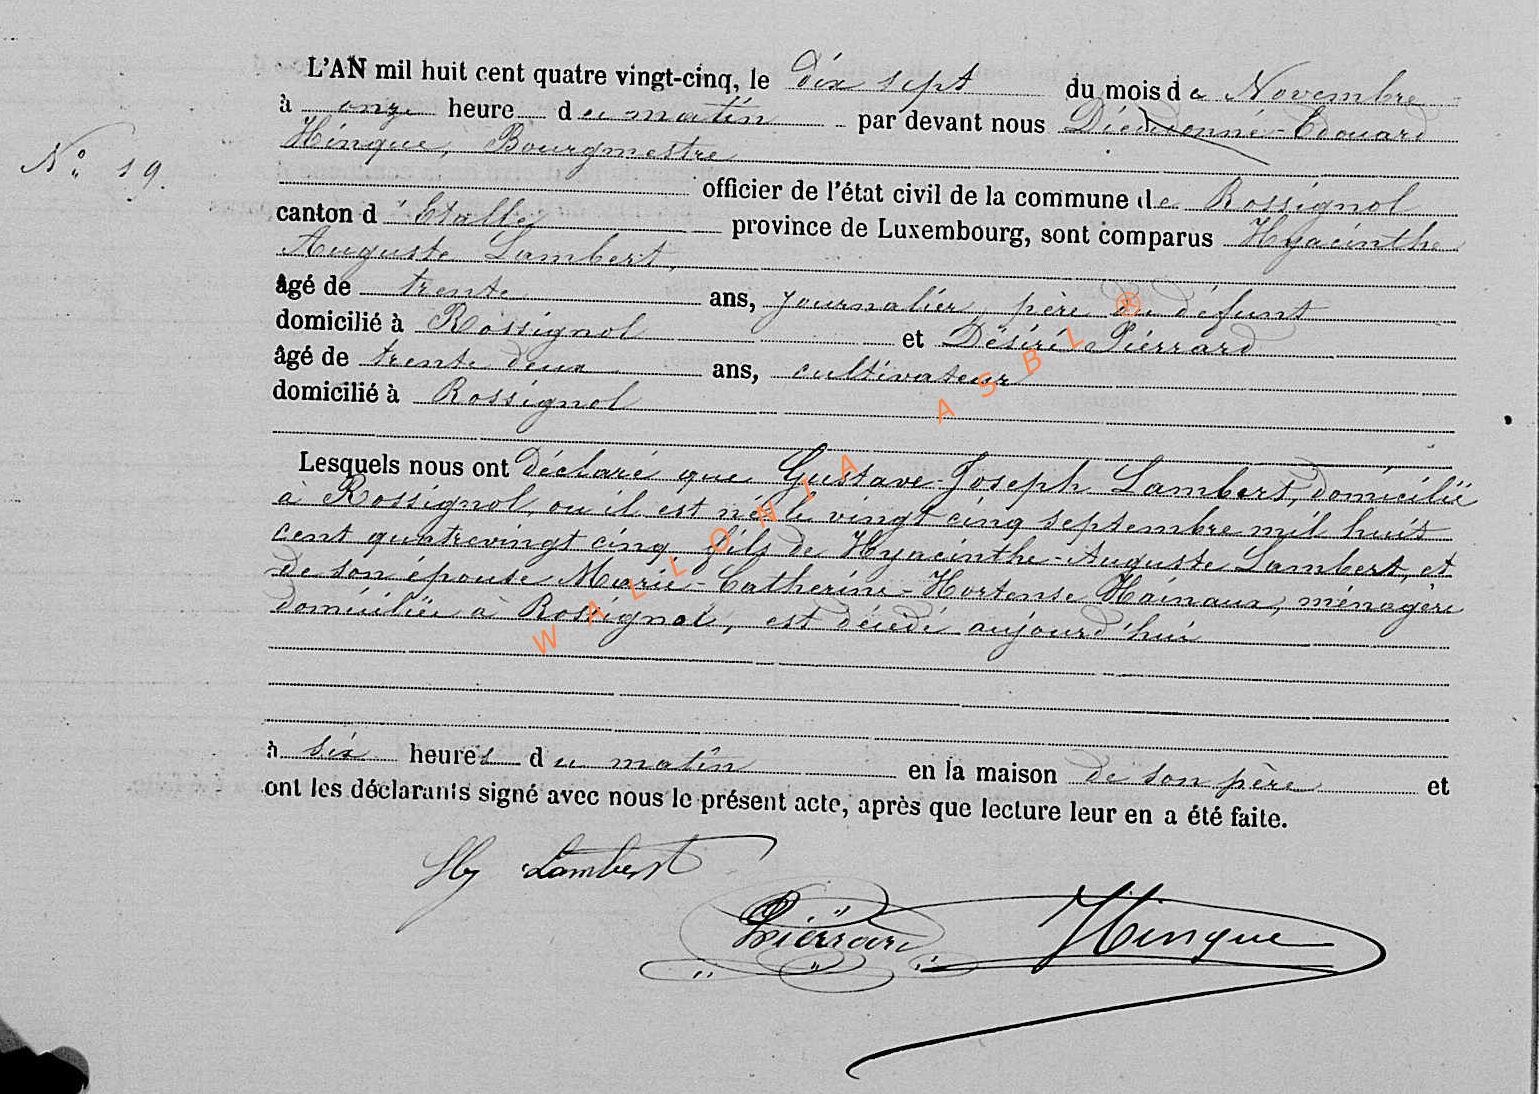 L'AN mil huit cent quatre vingt-cinq, le dix sept du mois de Novembre
à onze heure du matin par devant nous Dieudonné-Edouard
Hinque, Bourgmestre
N° 19.
officier de l'état civil de la commune de Rossignol
canton d'Etalle province de Luxembourg, sont comparus Hyacinthe
Auguste Lambert,
âgé de trente ans, journalier, père du défunt
domicilié à Rossignol et Désiré Piérrard
âgé de trente deux ans, cultivateur
domicilié à Rossignol
Lesquels nous ont déclaré que Gustave-Joseph Lambert, domicilié
à Rossignol, ou il est né le vingt cinq septembre mil huit
cent quatrevingt cinq, fils de Hyacinthe-Auguste Lambert, et
de son épouse Marie-Catherine-Hortense Hainaux, ménagère
domiciliée à Rossignol, est décédé aujourd'hui
à six heures du matin en la maison de son père et
ont les déclarants signé avec nous le présent acte, après que lecture leur en a été faite.
Hy Lambert
Piérrard Hinque
WALLONIA ASBL ®